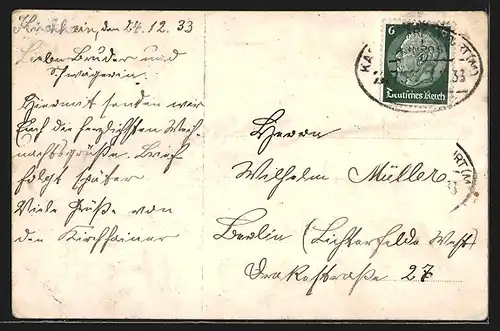 Kirchhain, den 24.12.33
Lieber Bruder und
Schwägerin.
Hiermit senden wir
Euch die herzlichsten Weih-
nachtsgrüße. Brief
folgt später
Viele Grüße von
den Kirchhainer
6
Deutsches Reich
33
Herrn
Wilhelm Müller
Berlin (Lichterfelde West)
Drakestraße 27